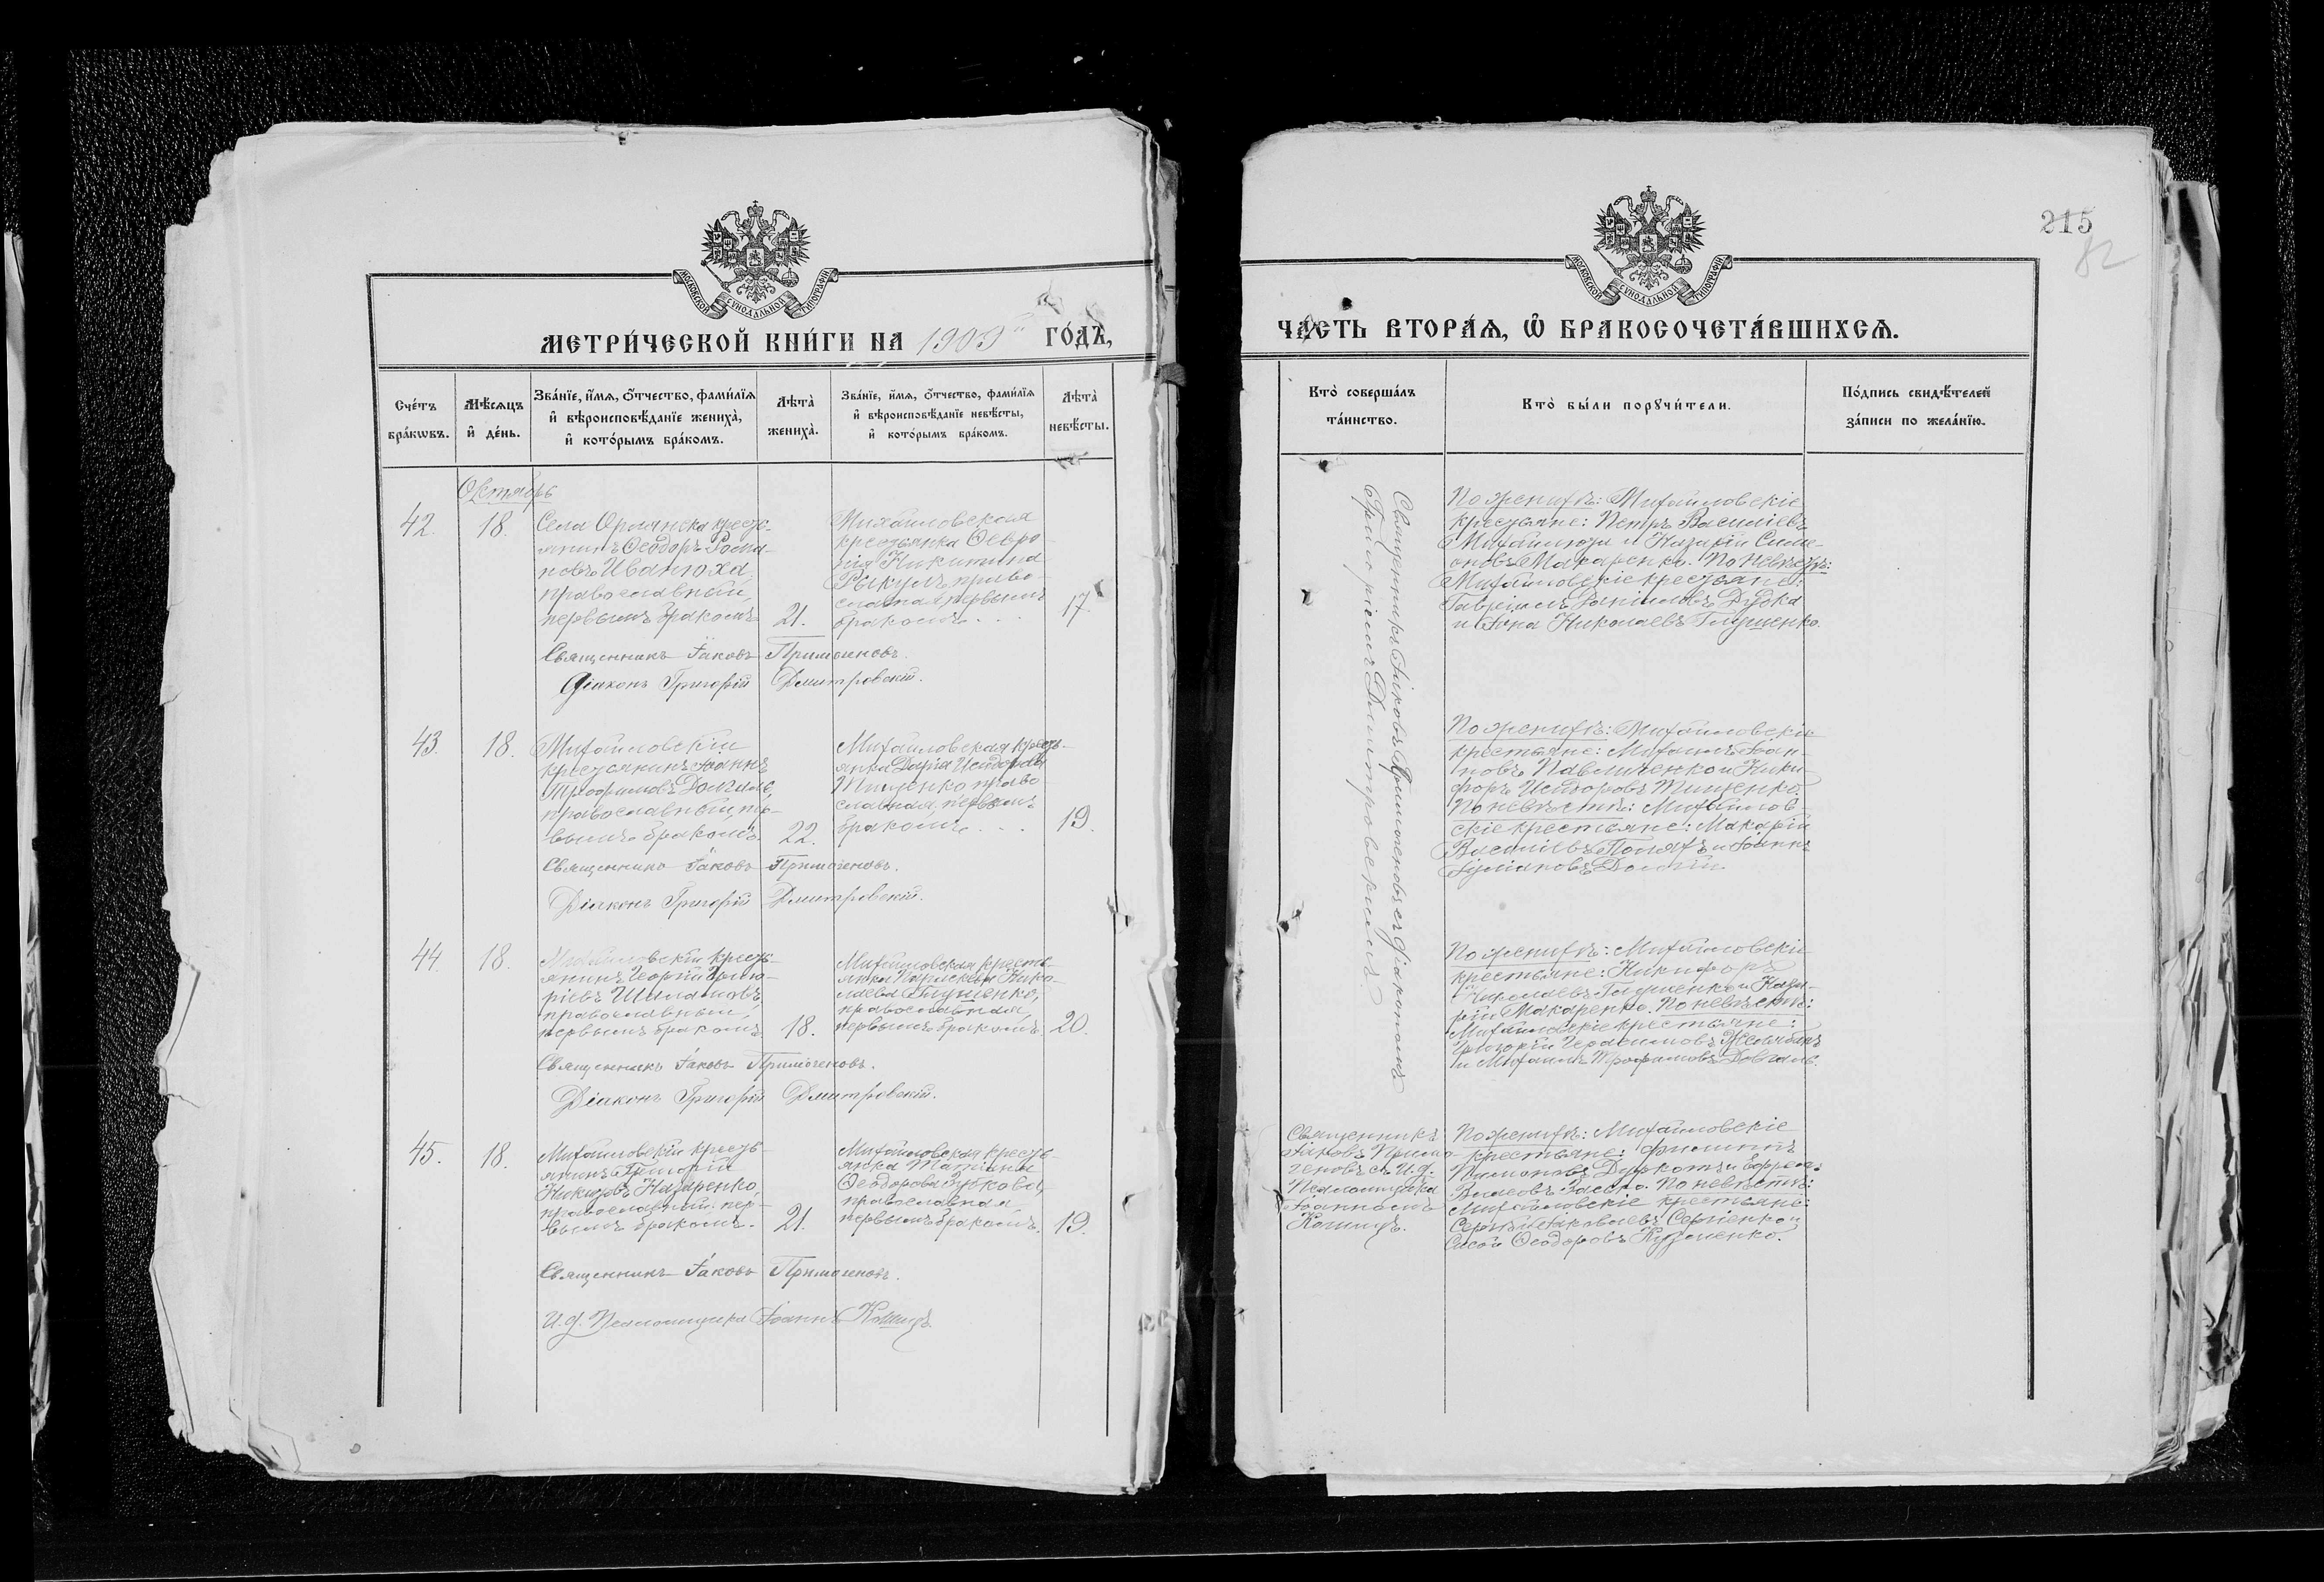 МОСКОВСКОЙ СѴНОДАЛЬНОЙ ТИПОГРАФІИ
МЕТРИ́ЧЕСКОЙ КНИ́ГИ НА 1909 ГО́ДЪ,
Сче́тъ бра́кѡвъ.
Мѣ́сѧцъ и҆ де́нь.
Зва́нїе, и҆́мѧ, ѻ҆́тчество, фами́лїѧ
и҆ вѣроисповѣ́данїе жениха̀,
и҆ кото́рымъ бра́комъ.
Лѣта̀ жениха̀.
Зва́нїе, и҆́мѧ, ѻ҆́тчество, фами́лїѧ
и҆ вѣроисповѣ́данїе невѣ́сты,
и҆ кото́рымъ бра́комъ.
Лѣта̀ невѣ́сты.
Октябрь
42. 18.
Села Орлянска кресть-
янинъ Ѳеодоръ Рома-
новъ Иванюха,
православный,
первымъ бракомъ
21.
Михайловская
крестьянка Ѳевро-
нія Никитина
Рыкулъ, право-
славная, первымъ
бракомъ . . .
17.
Священникъ Іаковъ Примогеновъ.
Діаконъ Григорій Дмитровскій.
43. 18.
Михайловскій
крестьянинъ Іоаннъ
Трофимовъ Довгаль,
православный, пер-
вымъ бракомъ.
22.
Михайловская кресть-
янка Дарія Исидорова
Тищенко, право-
славная, первымъ
бракомъ . . .
19.
Священникъ Іаковъ Примогеновъ.
Діаконъ Григорій Дмитровскій.
44. 18.
Михайловскій кресть-
янинъ Георгій Григо-
ріевъ Шаламовъ,
православный,
первымъ бракомъ.
18.
Михайловская кресть-
янка Параскева Нико-
лаева Глущенко,
православная,
первымъ бракомъ.
20.
Священникъ Іаковъ Примогеновъ.
Діаконъ Григорій Дмитровскій.
45. 18.
Михайловскій кресть-
янинъ Григорій
Назаренко,
православный, пер-
вымъ бракомъ.
21.
Михайловская кресть-
янка Татіана
Ѳеодорова Зюкова,
православная,
первымъ бракомъ.
19.
Священникъ Іаковъ Примогеновъ.
И. д. Псаломщика Іоаннъ Кошицъ.
215
82
МОСКОВСКОЙ СѴНОДАЛЬНОЙ ТИПОГРАФІИ
ЧА́СТЬ ВТОРА́Ѧ, Ѽ БРАКОСОЧЕТА́ВШИХСѦ.
Кто̀ соверша́лъ та́инство.
Кто̀ бы́ли порꙋчи́тели.
По́дпись свидѣ́телей за́писи по жела́нїю.
Священникъ Іаковъ Примогеновъ съ Діакономъ
Григоріемъ Дмитровскимъ.
По женихѣ: Михайловскіе
крестьяне: Петръ Василіевъ
Михайлюза и Назарій Симе-
оновъ Макаренко. По невѣстѣ:
Михайловскіе крестьяне:
Гавріилъ Даніиловъ Дудка
и Николаевъ Глущенко.
По женихѣ: Михайловскіе
крестьяне: Михаилъ Іоан-
новъ Павличенко и Ники-
форъ Исидоровъ Тищенко.
По невѣстѣ: Михайлов-
скіе крестьяне: Макарій
Василіевъ и Іоаннъ
Іуліановъ Долгій
По женихѣ: Михайловскіе
крестьяне: Никифоръ
Николаевъ Глущенко и Наза-
рій Макаренко. По невѣстѣ:
Михайловскіе крестьяне:
Григорій Герасимовъ
и Михаилъ Трофимовъ Довгаль.
Священникъ
Іаковъ Примо-
геновъ съ И. д.
Псаломщика
Іоанномъ
Кошицъ.
По женихѣ: Михайловскіе
крестьяне: Филиппъ
и Ефремъ
Власовъ Заевко. По невѣстѣ:
Михайловскіе крестьяне:
Сергѣй Яковлевъ Сергіенко и
Сисой Ѳеодоровъ Кузменко.